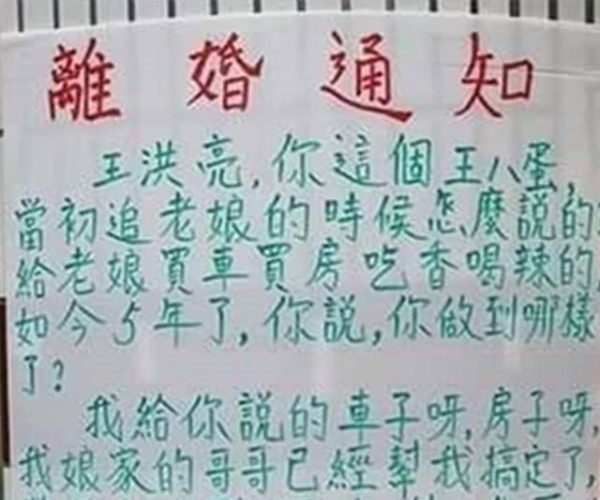 離婚通知
王洪亮,你這個王八蛋,
當初追老娘的時候怎麼說的?
給老娘買車買房吃香喝辣的,
如今5年了,你說,你做到哪樣
了?
我給你說的車子呀,房子呀,
我娘家的哥哥已經幫我搞定了,